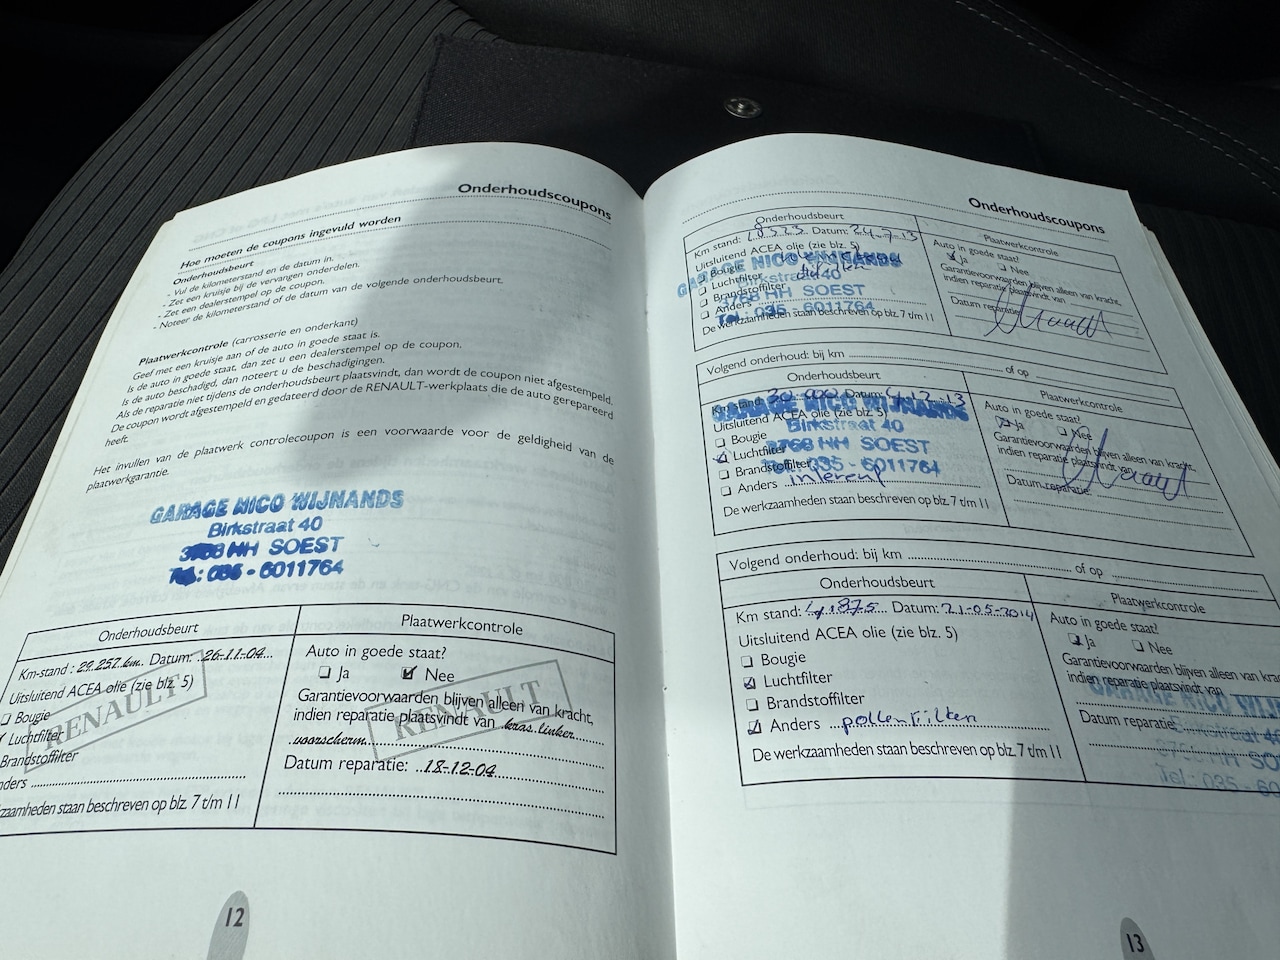 Onderhoudscoupons
Hoe moeten de coupons ingevuld worden
Onderhoudsbeurt
- Vul de kilometerstand en de datum in.
- Zet een kruisje bij de vervangen onderdelen.
- Zet een dealerstempel op de coupon.
- Noteer de kilometerstand of de datum van de volgende onderhoudsbeurt.
Plaatwerkcontrole (carrosserie en onderkant)
Geef met een kruisje aan of de auto in goede staat is.
Is de auto in goede staat, dan zet u een dealerstempel op de coupon.
Is de auto beschadigd, dan noteert u de beschadigingen.
Als de reparatie niet tijdens de onderhoudsbeurt plaatsvindt, dan wordt de coupon niet afgestempeld.
De coupon wordt afgestempeld en gedateerd door de RENAULT-werkplaats die de auto gerepareerd
heeft.
Het invullen van de plaatwerk controlecoupon is een voorwaarde voor de geldigheid van de
plaatwerkgarantie.
GARAGE NICO WIJNANDS
Birkstraat 40
3768 HH SOEST
Tel.: 035 - 6011764
Onderhoudsbeurt
Km-stand : 29.257 km. Datum: 26-11-04
Uitsluitend ACEA oliën (zie blz. 5)
Bougie
Luchtfilter
Brandstoffilter
RENAULT
zaamheden staan beschreven op blz. 7 t/m 11
Plaatwerkcontrole
Auto in goede staat?
Ja Nee
Garantievoorwaarden blijven alleen van kracht,
indien reparatie plaatsvindt van kras linker
voorscherm.
RENAULT
Datum reparatie: 18-12-04
12
Onderhoudscoupons
Onderhoudsbeurt
Km stand: Datum: 24-7-13
Uitsluitend ACEA olie (zie blz. 5)
Bougie
Luchtfilter
Brandstoffilter
Anders
GARAGE NICO WIJNANDS
Birkstraat 40
3768 HH SOEST
Tel.: 035 - 6011764
De werkzaamheden staan beschreven op blz. 7 t/m 11
Plaatwerkcontrole
Auto in goede staat?
Ja Nee
Garantievoorwaarden blijven alleen van kracht,
indien reparatie plaatsvindt van
Datum reparatie:
Volgend onderhoud: bij km of op
Onderhoudsbeurt
Km stand: 30 000 Datum: 4-12-13
Uitsluitend ACEA olie (zie blz. 5)
Bougie
Luchtfilter
Brandstoffilter
Anders interieur
GARAGE NICO WIJNANDS
Birkstraat 40
3768 HH SOEST
Tel.: 035 - 6011764
De werkzaamheden staan beschreven op blz. 7 t/m 11
Plaatwerkcontrole
Auto in goede staat?
Ja Nee
Garantievoorwaarden blijven alleen van kracht,
indien reparatie plaatsvindt van
Datum reparatie:
Volgend onderhoud: bij km of op
Onderhoudsbeurt
Km stand: 41875 Datum: 21-05-2014
Uitsluitend ACEA olie (zie blz. 5)
Bougie
Luchtfilter
Brandstoffilter
Anders pollenfilter
De werkzaamheden staan beschreven op blz. 7 t/m 11
Plaatwerkcontrole
Auto in goede staat?
Ja Nee
Garantievoorwaarden blijven alleen van kracht,
indien reparatie plaatsvindt van
GARAGE NICO WIJN
Datum reparatie:
Birkstraat 40
3768 HH SO
Tel.: 035 - 60
13